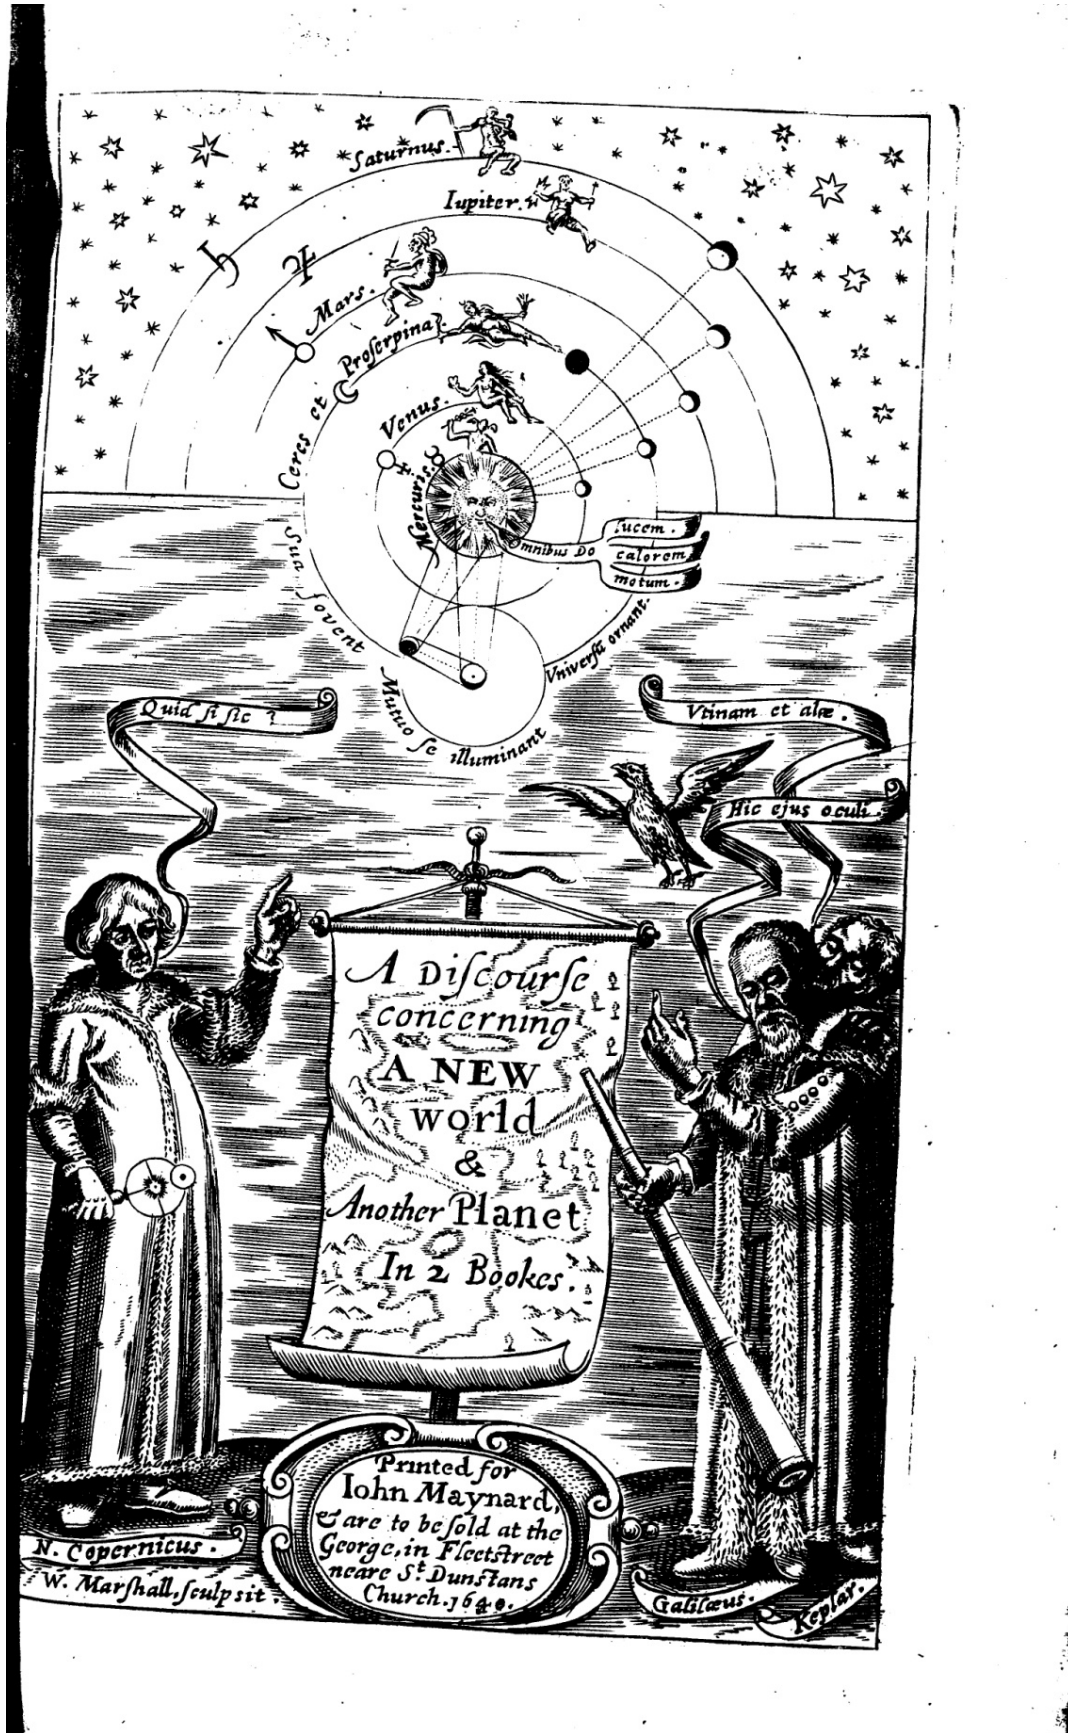 Saturnus.
Iupiter.
Mars.
Ceres et Proſerpina
Venus.
Mercuris.
Omnibus Do
lucem.
calorem
motum.
Sua ſovent
Vniverſū ornant.
Mutuo ſe illuminant
Quid ſi ſic ?
Vtinam et alæ.
Hic ejus oculi.
A Diſcourſe
concerning
A NEW
world
&
Another Planet
In 2 Bookes.
Printed for
Iohn Maynard,
& are to be ſold at the
George, in Fleetſtreet
neare St. Dunſtans
Church. 1640.
N. Copernicus.
W. Marſhall, ſculpsit.
Galilæus.
Keplar.